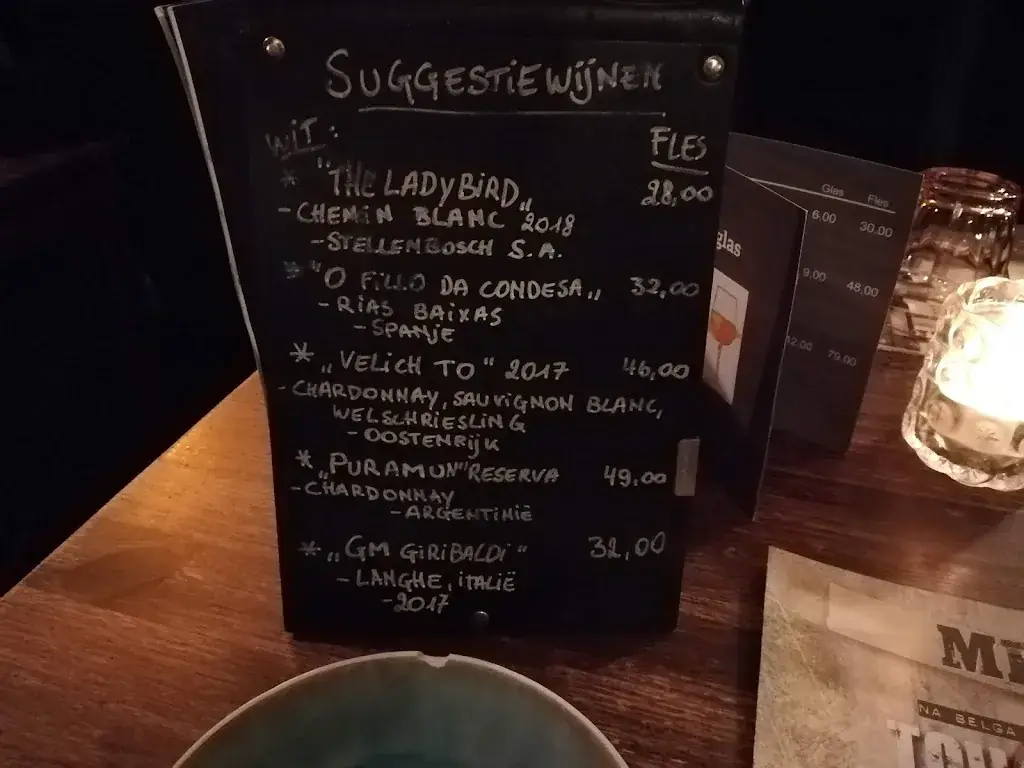 SUGGESTIEWIJNEN
WIT:
FLES
* "THE LADYBIRD„ 28,00
- CHENIN BLANC 2018
- STELLENBOSCH S.A.
* "O FILLO DA CONDESA„ 32,00
- RIAS BAIXAS
- SPANJE
* „VELICH TO" 2017 46,00
- CHARDONNAY, SAUVIGNON BLANC,
WELSCHRIESLING
- OOSTENRIJK
* „PURAMUN" RESERVA 49,00
- CHARDONNAY
- ARGENTINIË
* „GM GIRIBALDI" 32,00
- LANGHE, ITALIË
- 2017
glas
Glas Fles
6.00 30.00
9.00 48.00
12.00 79.00
NA BELGA